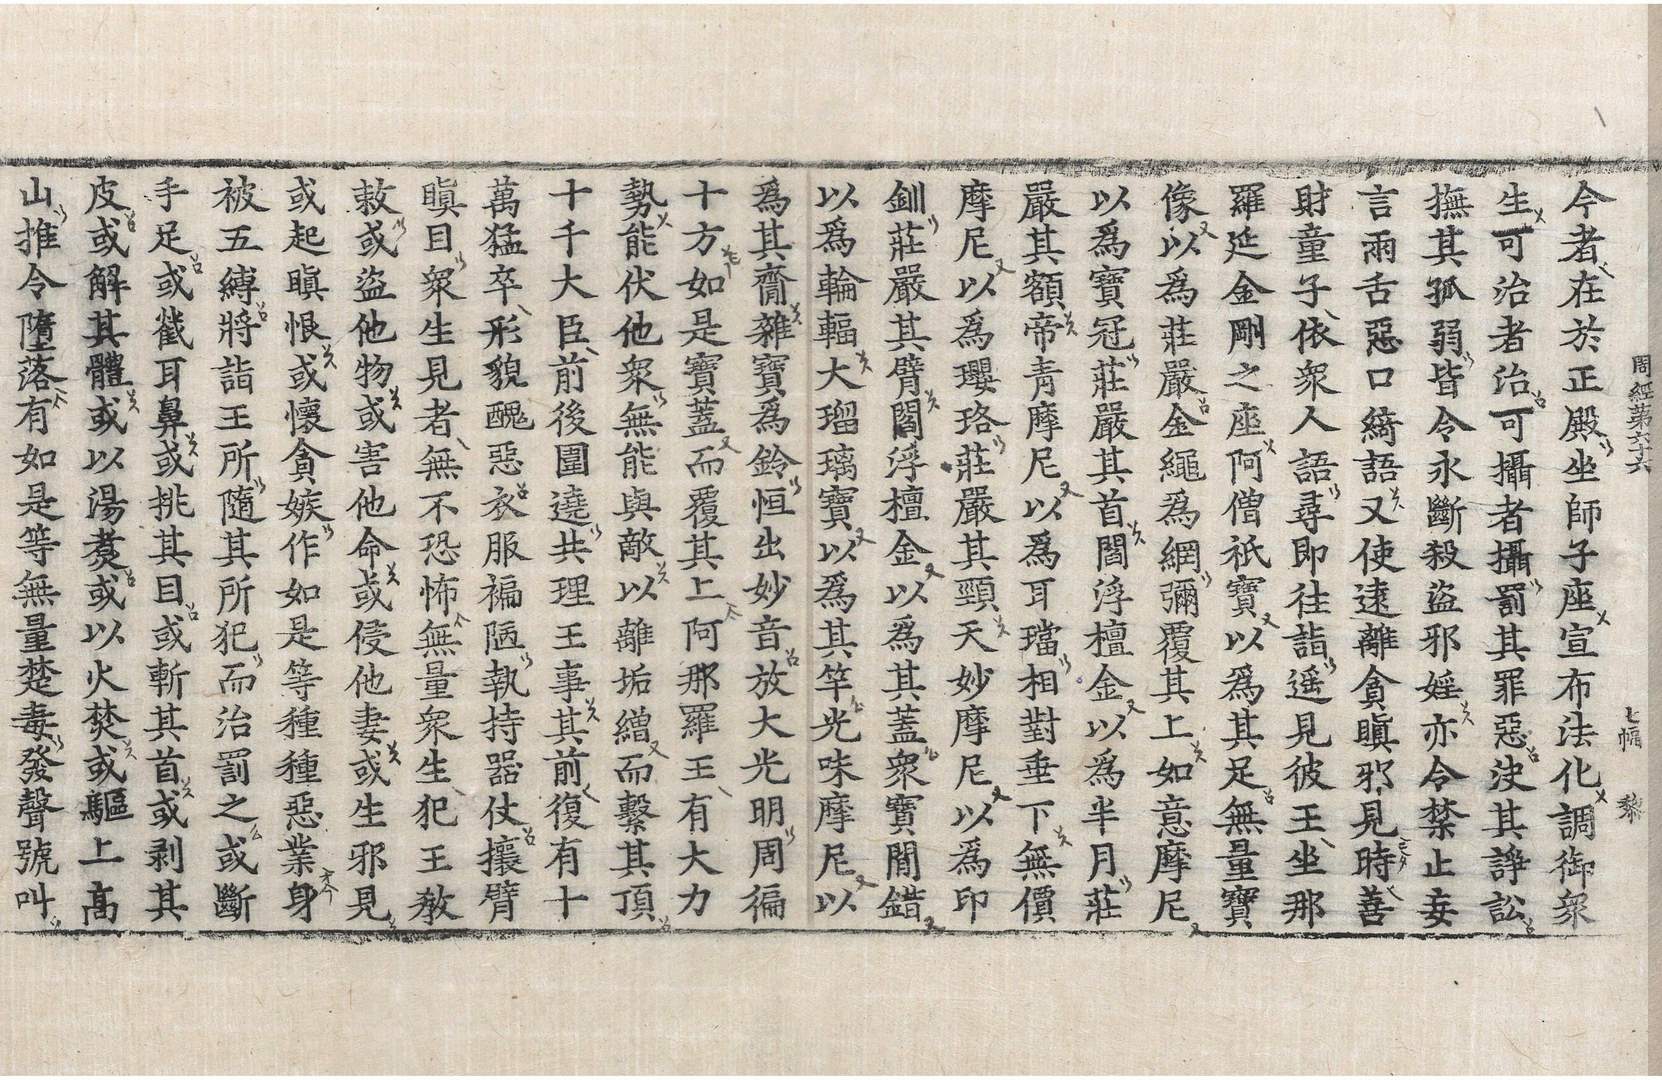 周經第六十六 七幅 黎
今者在於正殿坐師子座宣布法化調御衆
生可治者治可攝者攝罰其罪惡決其諍訟
撫其孤弱皆令永斷殺盜邪婬亦令禁止妄
言兩舌惡口綺語又使遠離貪瞋邪見時善
財童子依衆人語尋即往詣遥見彼王坐那
羅延金剛之座阿僧祇寶以爲其足無量寶
像以爲莊嚴金繩爲網彌覆其上如意摩尼
以爲寶冠莊嚴其首閻浮檀金以爲半月莊
嚴其額帝青摩尼以爲耳璫相對垂下無價
摩尼以爲瓔珞莊嚴其頸天妙摩尼以爲印
釧莊嚴其臂閻浮檀金以爲其蓋衆寶間錯
以爲輪輻大瑠璃寶以爲其竿光味摩尼以
爲其齎雜寶爲鈴恒出妙音放大光明周徧
十方如是寶蓋而覆其上阿那羅王有大力
勢能伏他衆無能與敵以離垢繒而繫其頂
十千大臣前後圍遶共理王事其前復有十
萬猛卒形貌醜惡衣服褊陋執持器仗攘臂
瞋目衆生見者無不恐怖無量衆生犯王教
敕或盜他物或害他命或侵他妻或生邪見
或起瞋恨或懷貪嫉作如是等種種惡業身
被五縛將詣王所隨其所犯而治罰之或斷
手足或截耳鼻或挑其目或斬其首或剥其
皮或解其體或以湯煑或以火焚或驅上高
山推令墮落有如是等無量楚毒發聲號叫